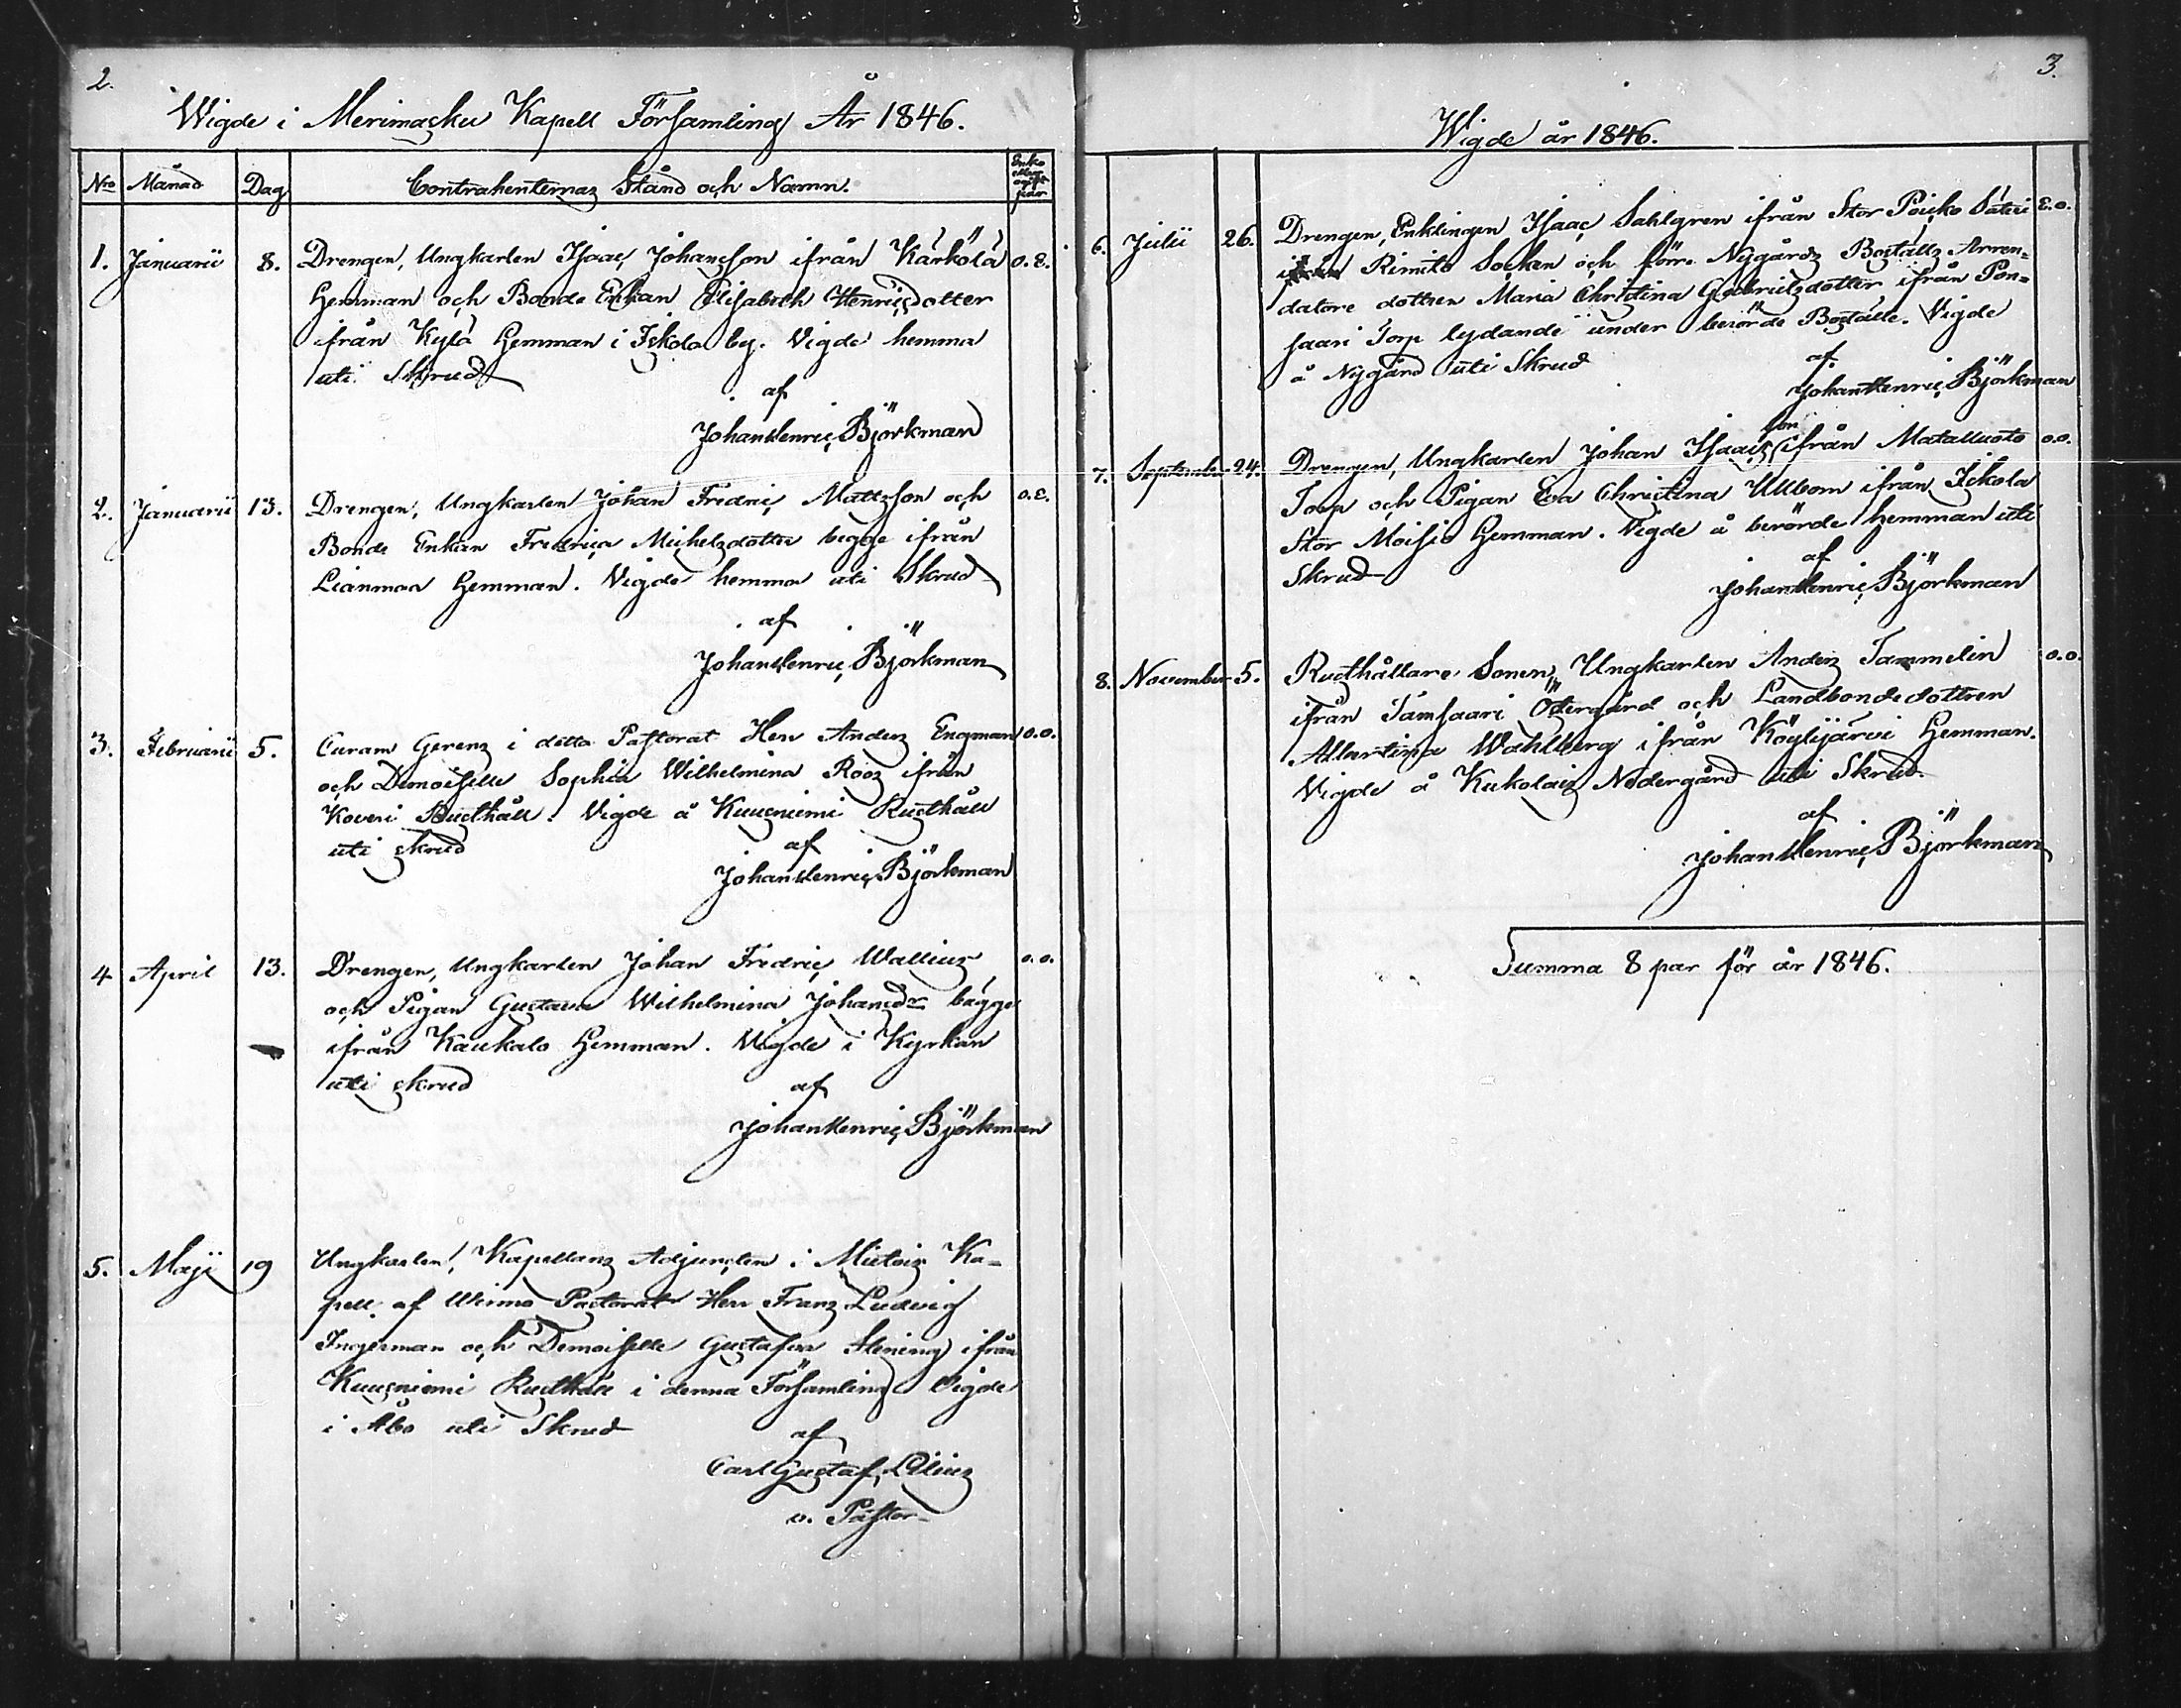 2.
Wigde i Merimasku Kapell Församling År 1846.
Nro Månad Dag Contrahenternas Stånd och Namn. Enka eller ogift
1. Januarii 8. Drengen, Ungkarlen Isaac Johansson ifrån Kärkölä o.E.
Hemman och Bonde Enkan Elisabeth Henricsdotter
ifrån Kylä Hemman i Iskola by. Vigde hemma
uti Skrud
af
Johan Henric Björkman
2. Januarii 13. Drengen, Ungkarlen Johan Fredric Mattsson och o.E.
Bonde Enkan Fredrica Michelsdotter begge ifrån
Lianmaa Hemman. Vigde hemma uti Skrud
af
Johan Henric Björkman
3. Februarii 5. Curam Gerens i detta Pastorat Herr Anders Engman o.o.
och Demoiselle Sophia Wilhelmina Roos ifrån
Koveri Rusthåll. Vigde å Kuusniemi Rusthåll
uti skrud
af
Johan Henric Björkman
4 April 13. Drengen, Ungkarlen Johan Fredric Wallius o.o.
och Pigan Gustava Wilhelmina Johansdr bägge
ifrån Kaukalo Hemman. Vigde i Kyrkan
uti skrud
af
Johan Henric Björkman
5. Maji 19 Ungkarlen, Kapellans Adjuncten i Mietois Ka-
pell af Wirmo Pastorat Herr Franz Ludvig
Ingerman och Demoiselle Gustafva Stening ifrån
Kuusniemi Rusthåll i denna Församling Vigde
i Åbo uti Skrud
af
Carl Gustaf Lilius
v. Pastor
3.
Wigde år 1846.
6. Julii 26. Drengen, Enklingen Isaac Sahlgren ifrån Stor Poiko Säteri E.o.
Rimito Socken och förre Nygårds Boställs Arren-
datore dottren Maria Christina Gabrielsdotter ifrån Pon-
saari Torp lydande under berörde Boställe. Vigde
å Nygård uti Skrud
af
Johan Henric Björkman
7. September 24. Drengen, Ungkarlen Johan Isaacsson ifrån Mataluoto o.o.
Torp och Pigan Eva Christina Ullbom ifrån Iskola
Stor Moisio Hemman. Vigde å berörde Hemman uti
Skrud
af
Johan Henric Björkman
8. November 5. Rusthållare Sonen, Ungkarlen Anders Tammelin o.o.
ifrån Samsaari Östergård och Landbondedottren
Albertina Wahlberg ifrån Köylijärvi Hemman.
Vigde å Kukolais Nedergård uti Skrud.
af
Johan Henric Björkman
Summa 8 par för år 1846.